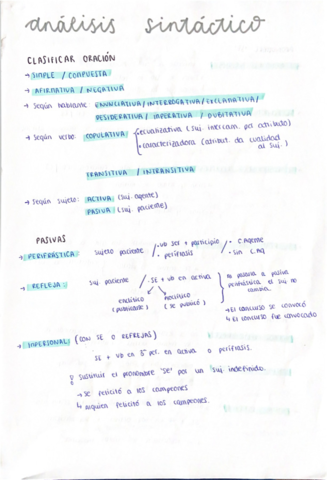 análisis sintáctico
CLASIFICAR ORACIÓN
→ SIMPLE / COMPUESTA
→ AFIRMATIVA / NEGATIVA
→ Según hablante ENUNCIATIVA / INTERROGATIVA / EXCLAMATIVA /
DESIDERATIVA / IMPERATIVA / DUBITATIVA
→ Según verbo: COPULATIVA (suj. intercam. por atributo)
• caracterizadora (atribut. da cualidad
al suj.)
TRANSITIVA / INTRANSITIVA
→ Según sujeto: ACTIVA (suj. agente)
PASIVA (suj. paciente)
PASIVAS
→ PERIFRÁSTICA sujeto paciente / • vb ser + participio / • C. Agente
• perífrasis • sin C. Ag
→ REFLEJA suj paciente / • SE + vb en activa
enclítico proclítico (se publicó)
al pasarla a pasiva perifrástica el suj no cambia.
→ El concurso se convocó
↳ El concurso fue convocado
→ IMPERSONAL (CON SE O REFLEJAS)
SE + vb en 3ª per. en activa o perífrasis.
sustituir el pronombre "SE" por un suj indefinido.
→ se felicitó a los campeones
↳ alguien felicitó a los campeones.